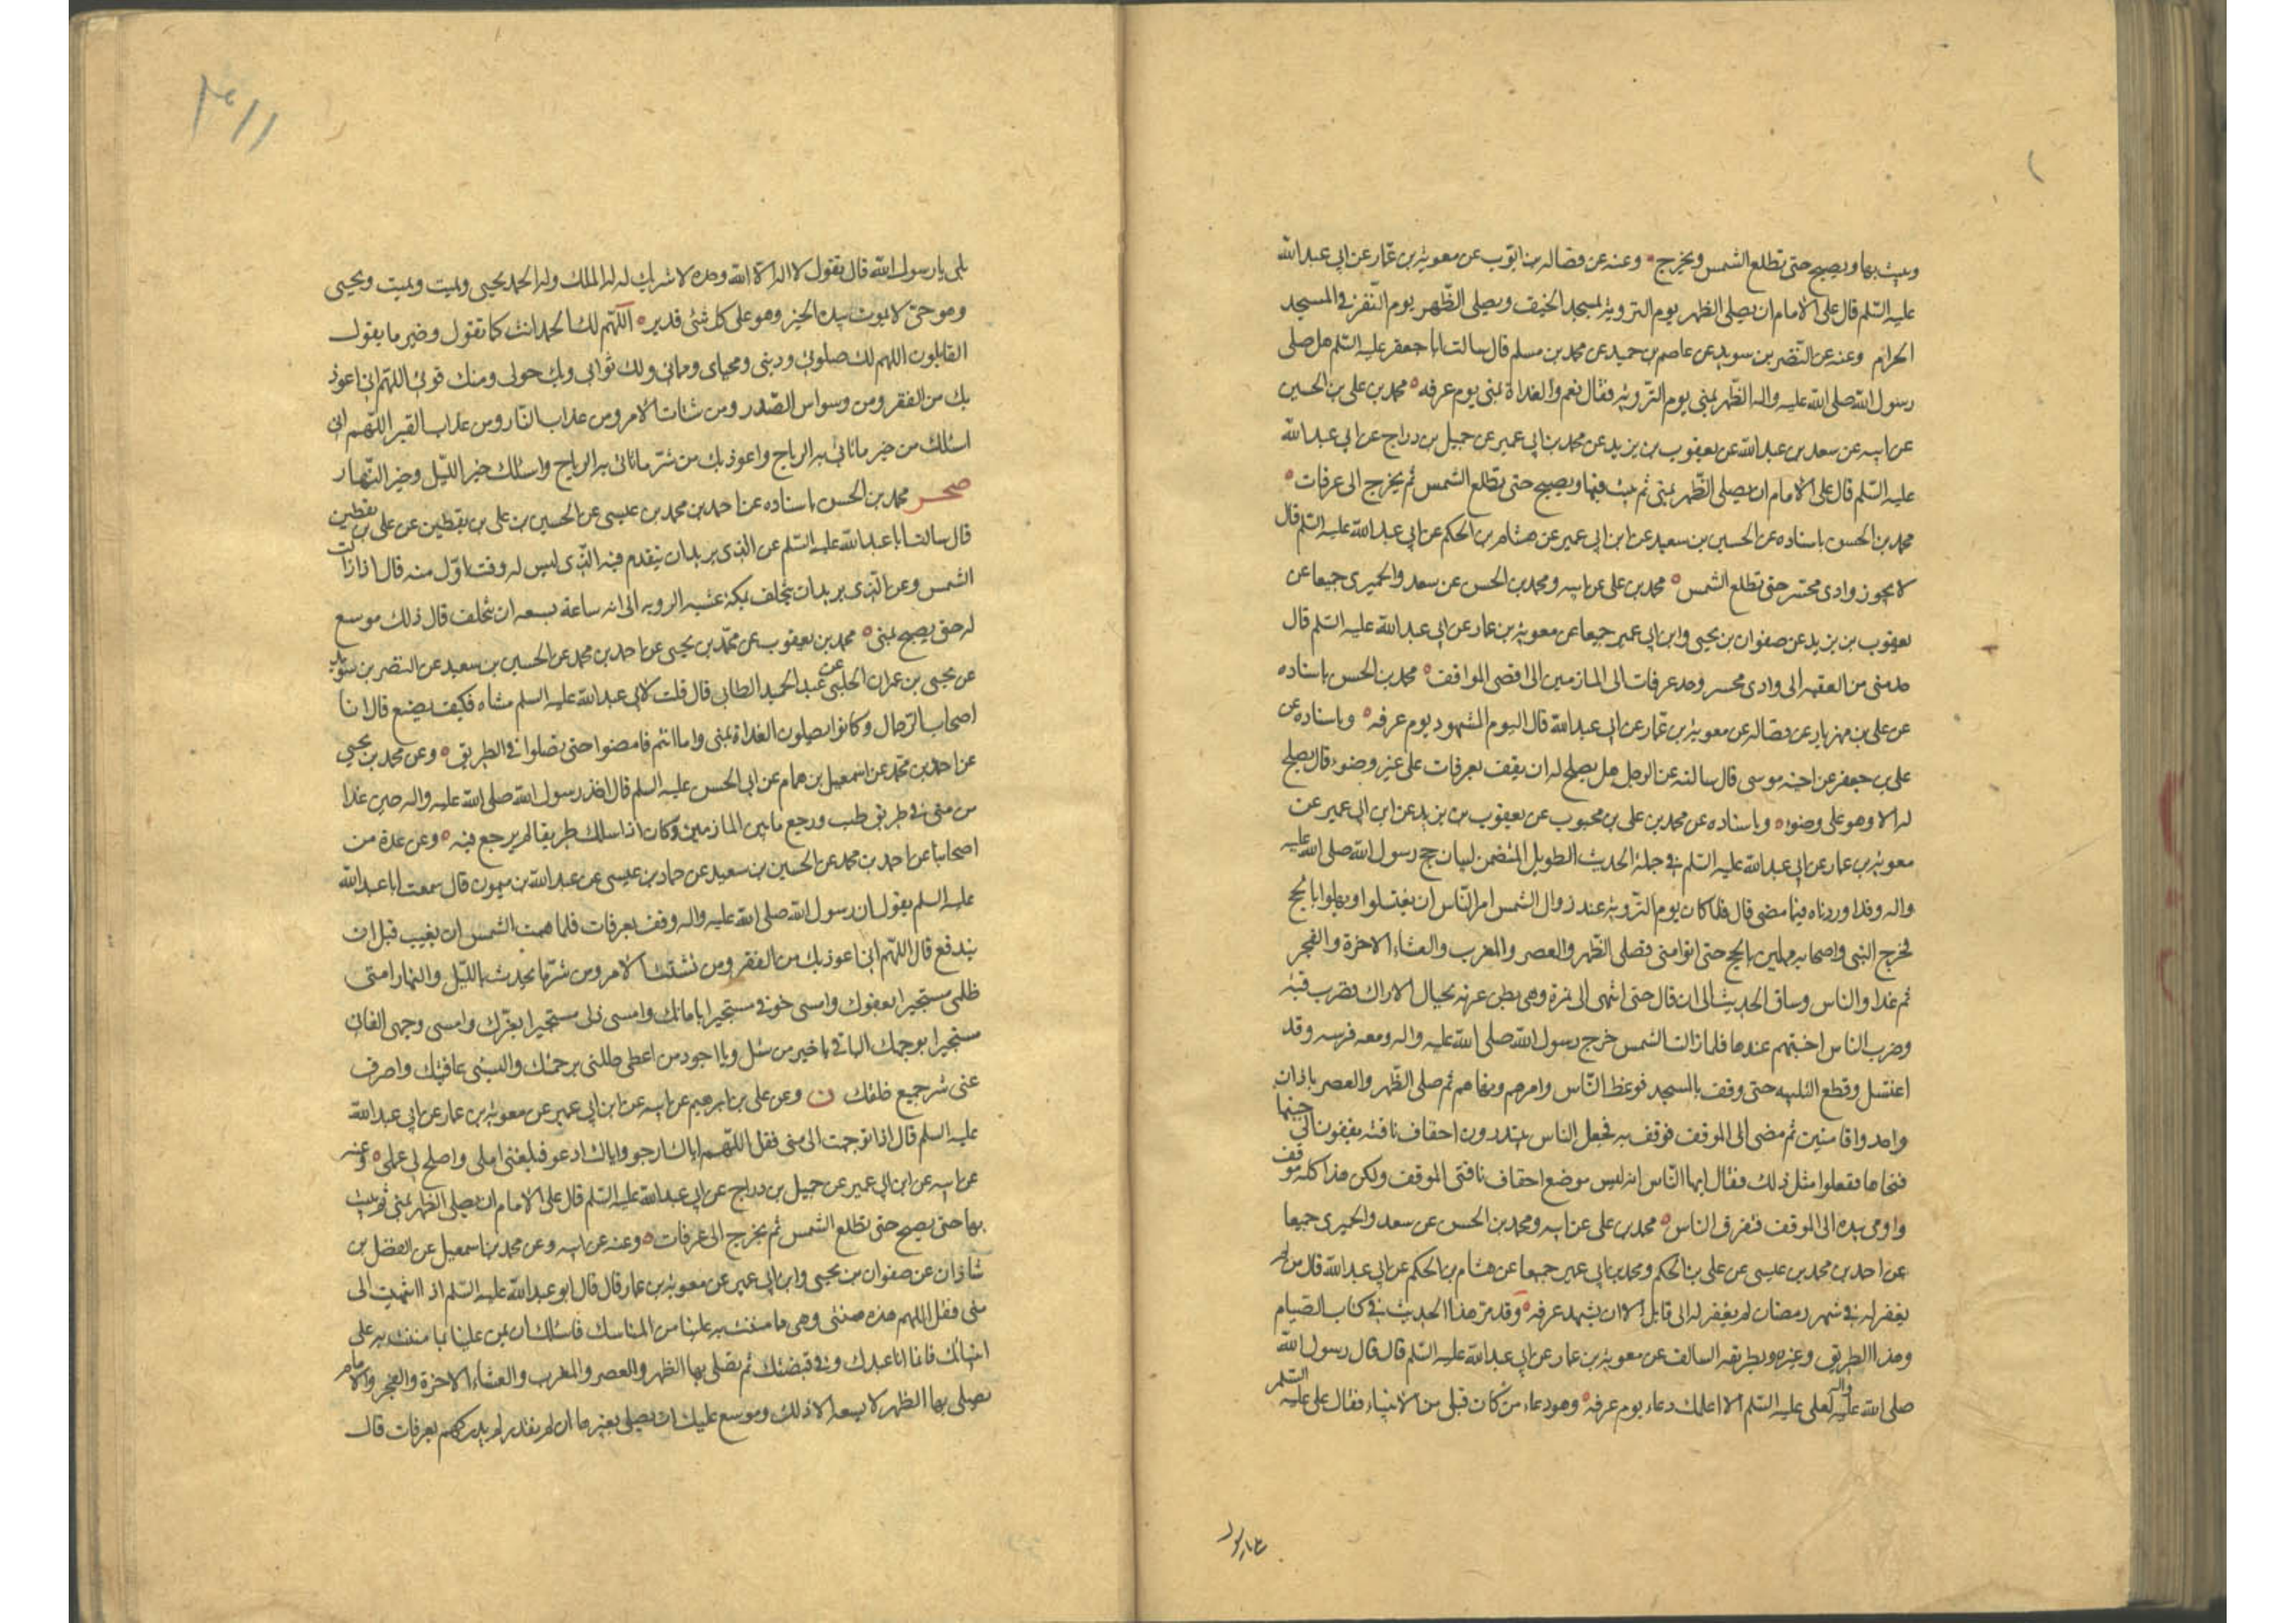 ويبيت بها ويصبح حتى تطلع الشمس ويخرج ه وعنه عن فضاله بن ايوب عن معوية بن عمار عن ابي عبدالله
عليه السلم قال على الامام ان يصلى الظهر يوم التروية بمسجد الخيف ويصلى الظهر يوم النفر في المسجد
الحرام وعنه عن النضر بن سويد عن عاصم بن حميد عن محمد بن مسلم قال سالت ابا جعفر عليه السلم هل صلى
رسول الله صلى الله عليه واله الظهر بمنى يوم التروية فقال نعم والغداة بمنى يوم عرفه ه محمد بن على بن الحسين
عن ابيه عن سعد بن عبدالله عن يعقوب بن يزيد عن محمد بن ابي عمير عن جميل بن دراج عن ابي عبدالله
عليه السلم قال على الامام ان يصلى الظهر بمنى ثم يبيت فيها ويصبح حتى تطلع الشمس ثم يخرج الى عرفات ه
محمد بن الحسن باسناده عن الحسين بن سعيد عن ابن ابي عمير عن هشام بن الحكم عن ابي عبدالله عليه السلم قال
لا يجوز وادى محسر حتى تطلع الشمس ه محمد بن على عن ابيه ومحمد بن الحسن عن سعد والحميرى جميعا عن
يعقوب بن يزيد عن صفوان بن يحيى وابن ابي عمير جميعا عن معوية بن عمار عن ابي عبدالله عليه السلم قال
حد منى من العقبه الى وادى محسر وحد عرفات الى المازمين الى اقصى الموقف ه محمد بن الحسن باسناده
عن على بن مهزيار عن فضاله عن معوية بن عمار عن ابي عبدالله قال اليوم المشهود يوم عرفه ه وباسناده عن
على بن جعفر عن اخيه موسى قال سالته عن الرجل هل يصلح له ان يقف بعرفات على غير وضوء قال يصلح
له الا وهو على وضوء ه وباسناده عن محمد بن على بن محبوب عن يعقوب بن يزيد عن ابن ابي عمير عن
معوية بن عمار عن ابي عبدالله عليه السلم في جملة الحديث الطويل المتضمن لبيان حج رسول الله صلى الله عليه
واله وقد اوردناه فيما مضى قال فلما كان يوم التروية عند زوال الشمس امر الناس ان يغتسلوا ويهلوا بالحج
فخرج النبي واصحابه مهلين بالحج حتى اتوا منى فصلى الظهر والعصر والمغرب والعشاء الاخرة والفجر
ثم غدا والناس وساق الحديث الى ان قال حتى انتهى الى نمرة وهى بطن عرنه بحيال الاراك فضرب قبته
وضرب الناس اخبيتهم عندها فلما زالت الشمس خرج رسول الله صلى الله عليه واله ومعه فرسه وقد
اغتسل وقطع التلبيه حتى وقف بالمسجد فوعظ الناس وامرهم ونهاهم ثم صلى الظهر والعصر باذان
واحد واقامتين ثم مضى الى الموقف فوقف به فجعل الناس يبتدرون اخفاف ناقته يقفون الى جنبها
فنحاها ففعلوا مثل ذلك فقال ايها الناس انه ليس موضع اخفاف ناقتى الموقف ولكن هذا كله موقف
واومى بيده الى الموقف فتفرق الناس ه محمد بن على عن ابيه ومحمد بن الحسن عن سعد والحميرى جميعا
عن احمد بن محمد بن عيسى عن على بن الحكم ومحمد بن ابي عمير جميعا عن هشام بن الحكم عن ابي عبدالله قال من لم
يغفر له في شهر رمضان لم يغفر له الى قابل الا ان يشهد عرفه ه وقد مر هذا الحديث في كتاب الصيام
وهذا الطريق وغيره وبطريقه السالف عن معوية بن عمار عن ابي عبدالله عليه السلم قال قال رسول الله
صلى الله عليه واله لعلى عليه السلم الا اعلمك دعاء يوم عرفه وهو دعاء من كان قبلى من الانبياء فقال على عليه السلم
بلى يا رسول الله قال تقول لا اله الا الله وحده لا شريك له له الملك وله الحمد يحيى ويميت ويميت ويحيى
وهو حى لا يموت بيده الخير وهو على كل شئ قدير ه اللهم لك الحمد انت كما تقول وخير ما يقول
القايلون اللهم لك صلوتى ودينى ومحياى ومماتى ولك تراثى وبك حولى ومنك قوتى اللهم انى اعوذ
بك من الفقر ومن وسواس الصدر ومن شتات الامر ومن عذاب النار ومن عذاب القبر اللهم انى
اسئلك من خير ما تاتى به الرياح واعوذ بك من شر ما تاتى به الرياح واسئلك خير الليل وخير النهار
صحر محمد بن الحسن باسناده عن احمد بن محمد بن عيسى عن الحسين بن على بن يقطين عن على بن يقطين
قال سالت ابا عبدالله عليه السلم عن الذى يريد ان يتقدم فيه الذى ليس له وقت اول منه قال اذا زالت
الشمس وعن الذى يريد ان يتخلف بمكة عشيه الرويه الى ايه ساعة يسعه ان يتخلف قال ذلك موسع
له حتى يصبح بمنى ه محمد بن يعقوب عن محمد بن يحيى عن احمد بن محمد عن الحسين بن سعيد عن النضر بن سويد
عن يحيى بن عمران الحلبى عن عبدالحميد الطائى قال قلت لابى عبدالله عليه السلم مشاه فكيف نصنع قال اما
اصحاب الرحال وكانوا يصلون الغداة بمنى واما انتم فامضوا حتى تصلوا في الطريق ه وعن محمد بن يحيى
عن احمد بن محمد عن اسمعيل بن همام عن ابي الحسن عليه السلم قال اخذ رسول الله صلى الله عليه واله حين غدا
من منى في طريق ضب ورجع ما بين المازمين وكان اذا سلك طريقا لم يرجع فيه ه وعن عدة من
اصحابنا عن احمد بن محمد عن الحسين بن سعيد عن حماد بن عيسى عن عبدالله بن ميمون قال سمعت ابا عبدالله
عليه السلم يقول ان رسول الله صلى الله عليه واله وقف بعرفات فلما همت الشمس ان تغيب قبل ان
يندفع قال اللهم انى اعوذ بك من الفقر ومن تشتت الامر ومن شر ما يحدث بالليل والنهار امسى
ظلمى مستجيرا بعفوك وامسى خوفى مستجيرا بامانك وامسى ذلى مستجيرا بعزك وامسى وجهى الفانى
مستجيرا بوجهك الباقى يا خير من سئل ويا اجود من اعطى جللنى برحمتك والبسنى عافيتك واصرف
عنى شر جميع خلقك ن وعن على بن ابرهيم عن ابيه عن ابن ابي عمير عن معوية بن عمار عن ابي عبدالله
عليه السلم قال اذا توجهت الى منى فقل اللهم اياك ارجو واياك ادعو فبلغنى املى واصلح لى عملى ه وعنه
عن ابيه عن ابن ابي عمير عن جميل بن دراج عن ابي عبدالله عليه السلم قال على الامام ان يصلى الظهر بمنى ثم يبيت
بها حتى يصبح حتى تطلع الشمس ثم يخرج الى عرفات ه وعنه عن ابيه وعن محمد بن اسمعيل عن الفضل بن
شاذان عن صفوان بن يحيى وابن ابي عمير عن معوية بن عمار قال قال ابو عبدالله عليه السلم اذا انتهيت الى
منى فقل اللهم هذه منى وهى ما مننت به علينا من المناسك فاسئلك ان تمن علينا بما مننت به على
انبيائك فانما انا عبدك وفي قبضتك ثم تصلى بها الظهر والعصر والمغرب والعشاء الاخرة والفجر والامام
يصلى بها الظهر لا يسعه الا ذلك وموسع عليك ان تصلى بغيرها ان لم تقدر ثم تدركهم بعرفات قال